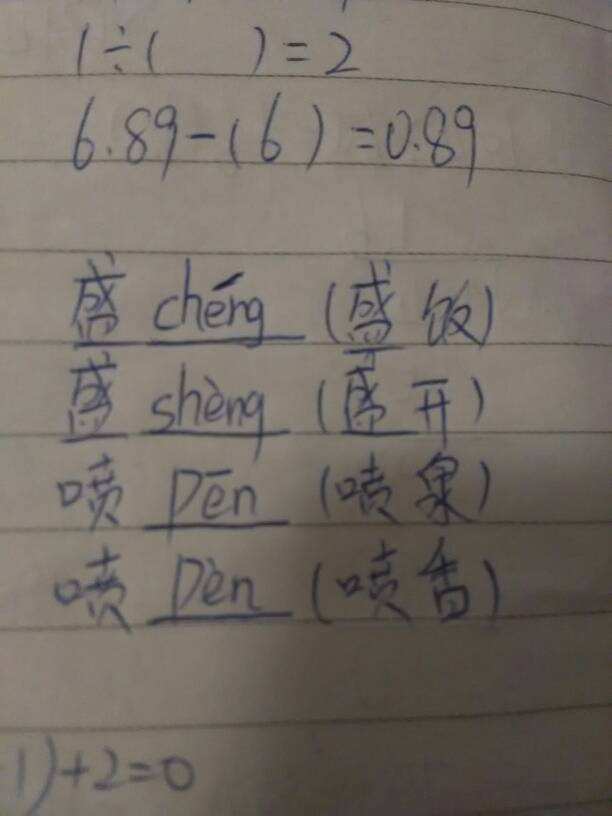 1÷( )=2
6.89-(6)=0.89
盛 chéng (盛饭)
盛 shèng (盛开)
喷 pēn (喷泉)
喷 pèn (喷香)
1)+2=0